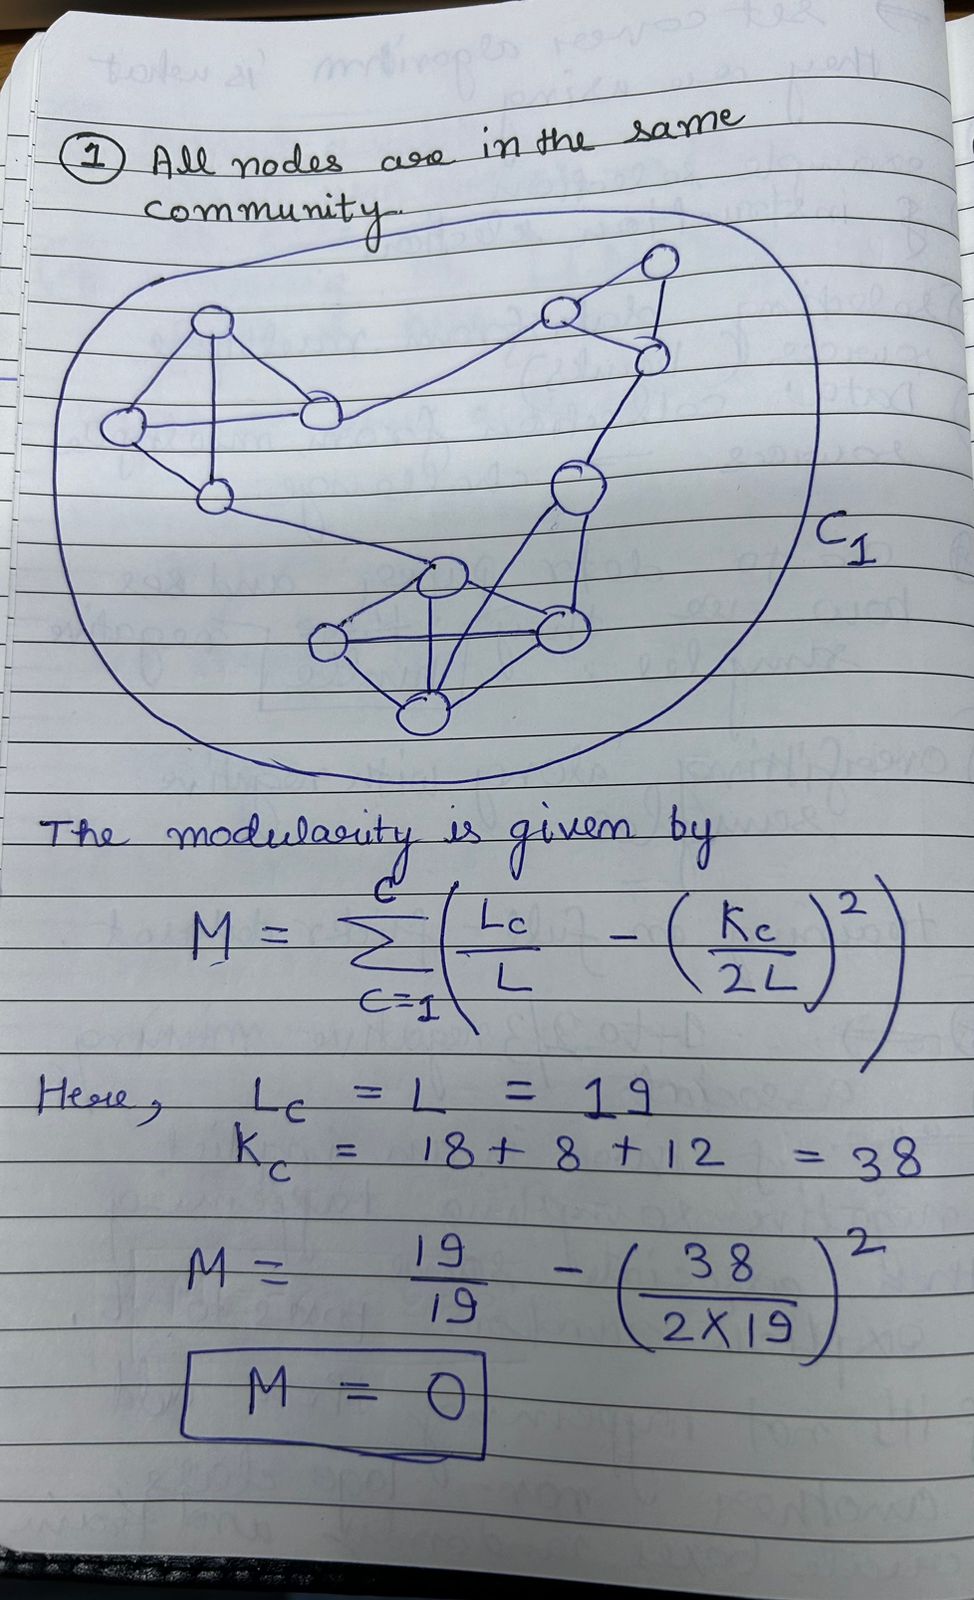 ① All nodes are in the same
community.
C1
The modularity is given by
M = C∑C=1 ( Lc/L - ( Kc/2L )² )
Here, Lc = L = 19
Kc = 18 + 8 + 12 = 38
M = 19/19 - ( 38/2×19 )²
M = 0